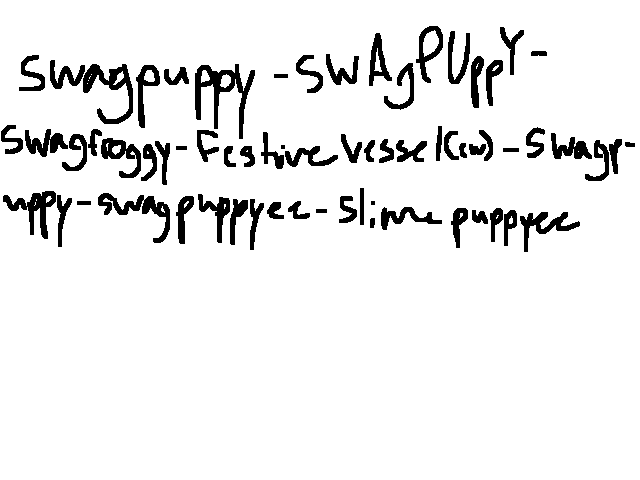 swagpuppy - SWAgPUppY -
Swagfroggy - Festive Vessel(ew) - Swagp-
uppy - swagpuppyee - Slime puppyee